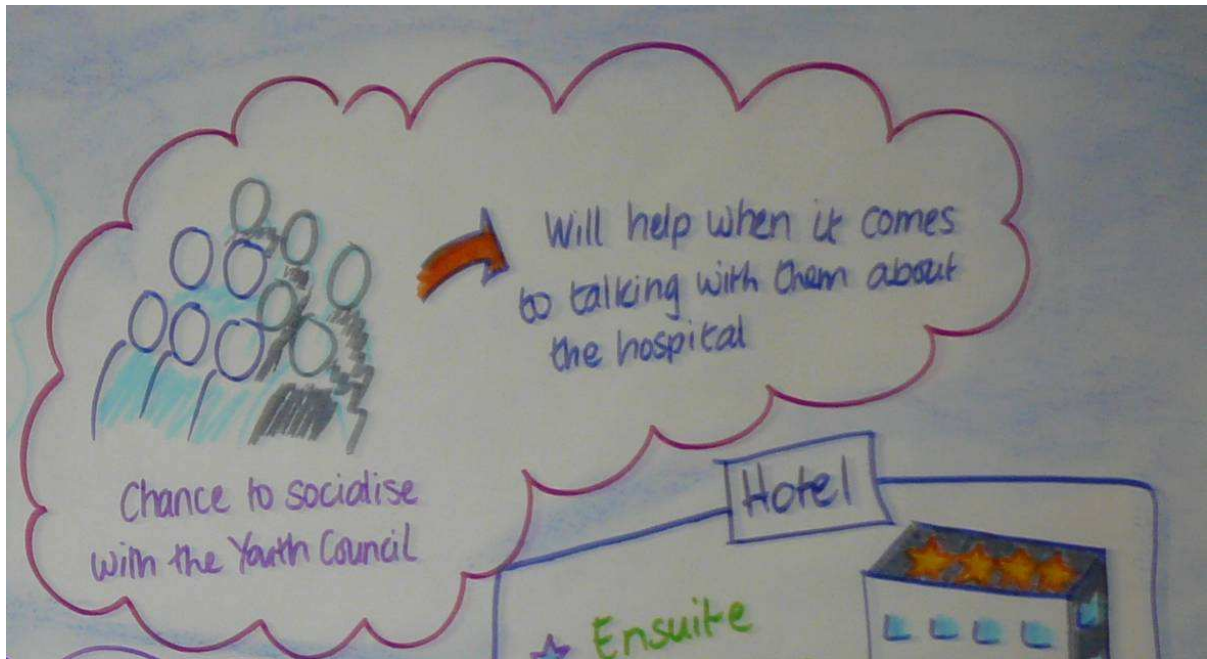 Will help when it comes
to talking with them about
the hospital
Chance to socialise
with the Youth Council
Hotel
Ensuite